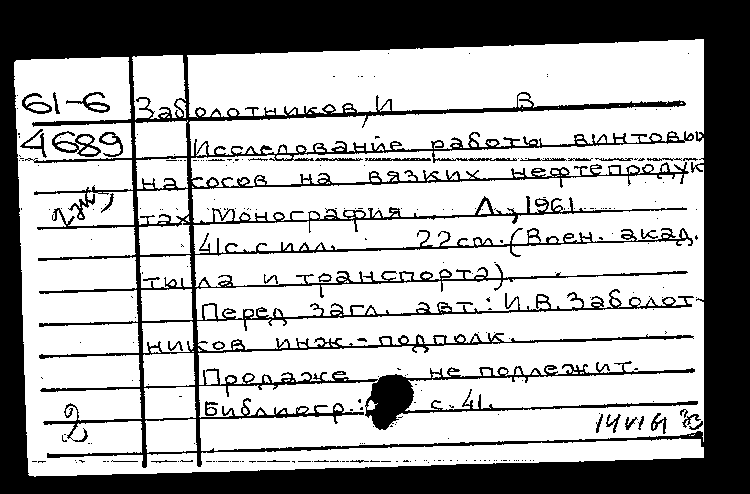 61-6 Заболотников, И В
4689 Исследование работы винтовы
насосов на вязких нефтепродук
тах. Монография. Л., 1961.
41с. с илл. 22cm. (Воен. акад.
тыла и транспорта).
Перед загл. авт.: И.В. Заболот-
ников инж.-подполк.
Продаже не подлежит.
Библиогр.: с. 41.
2 14 VI 61